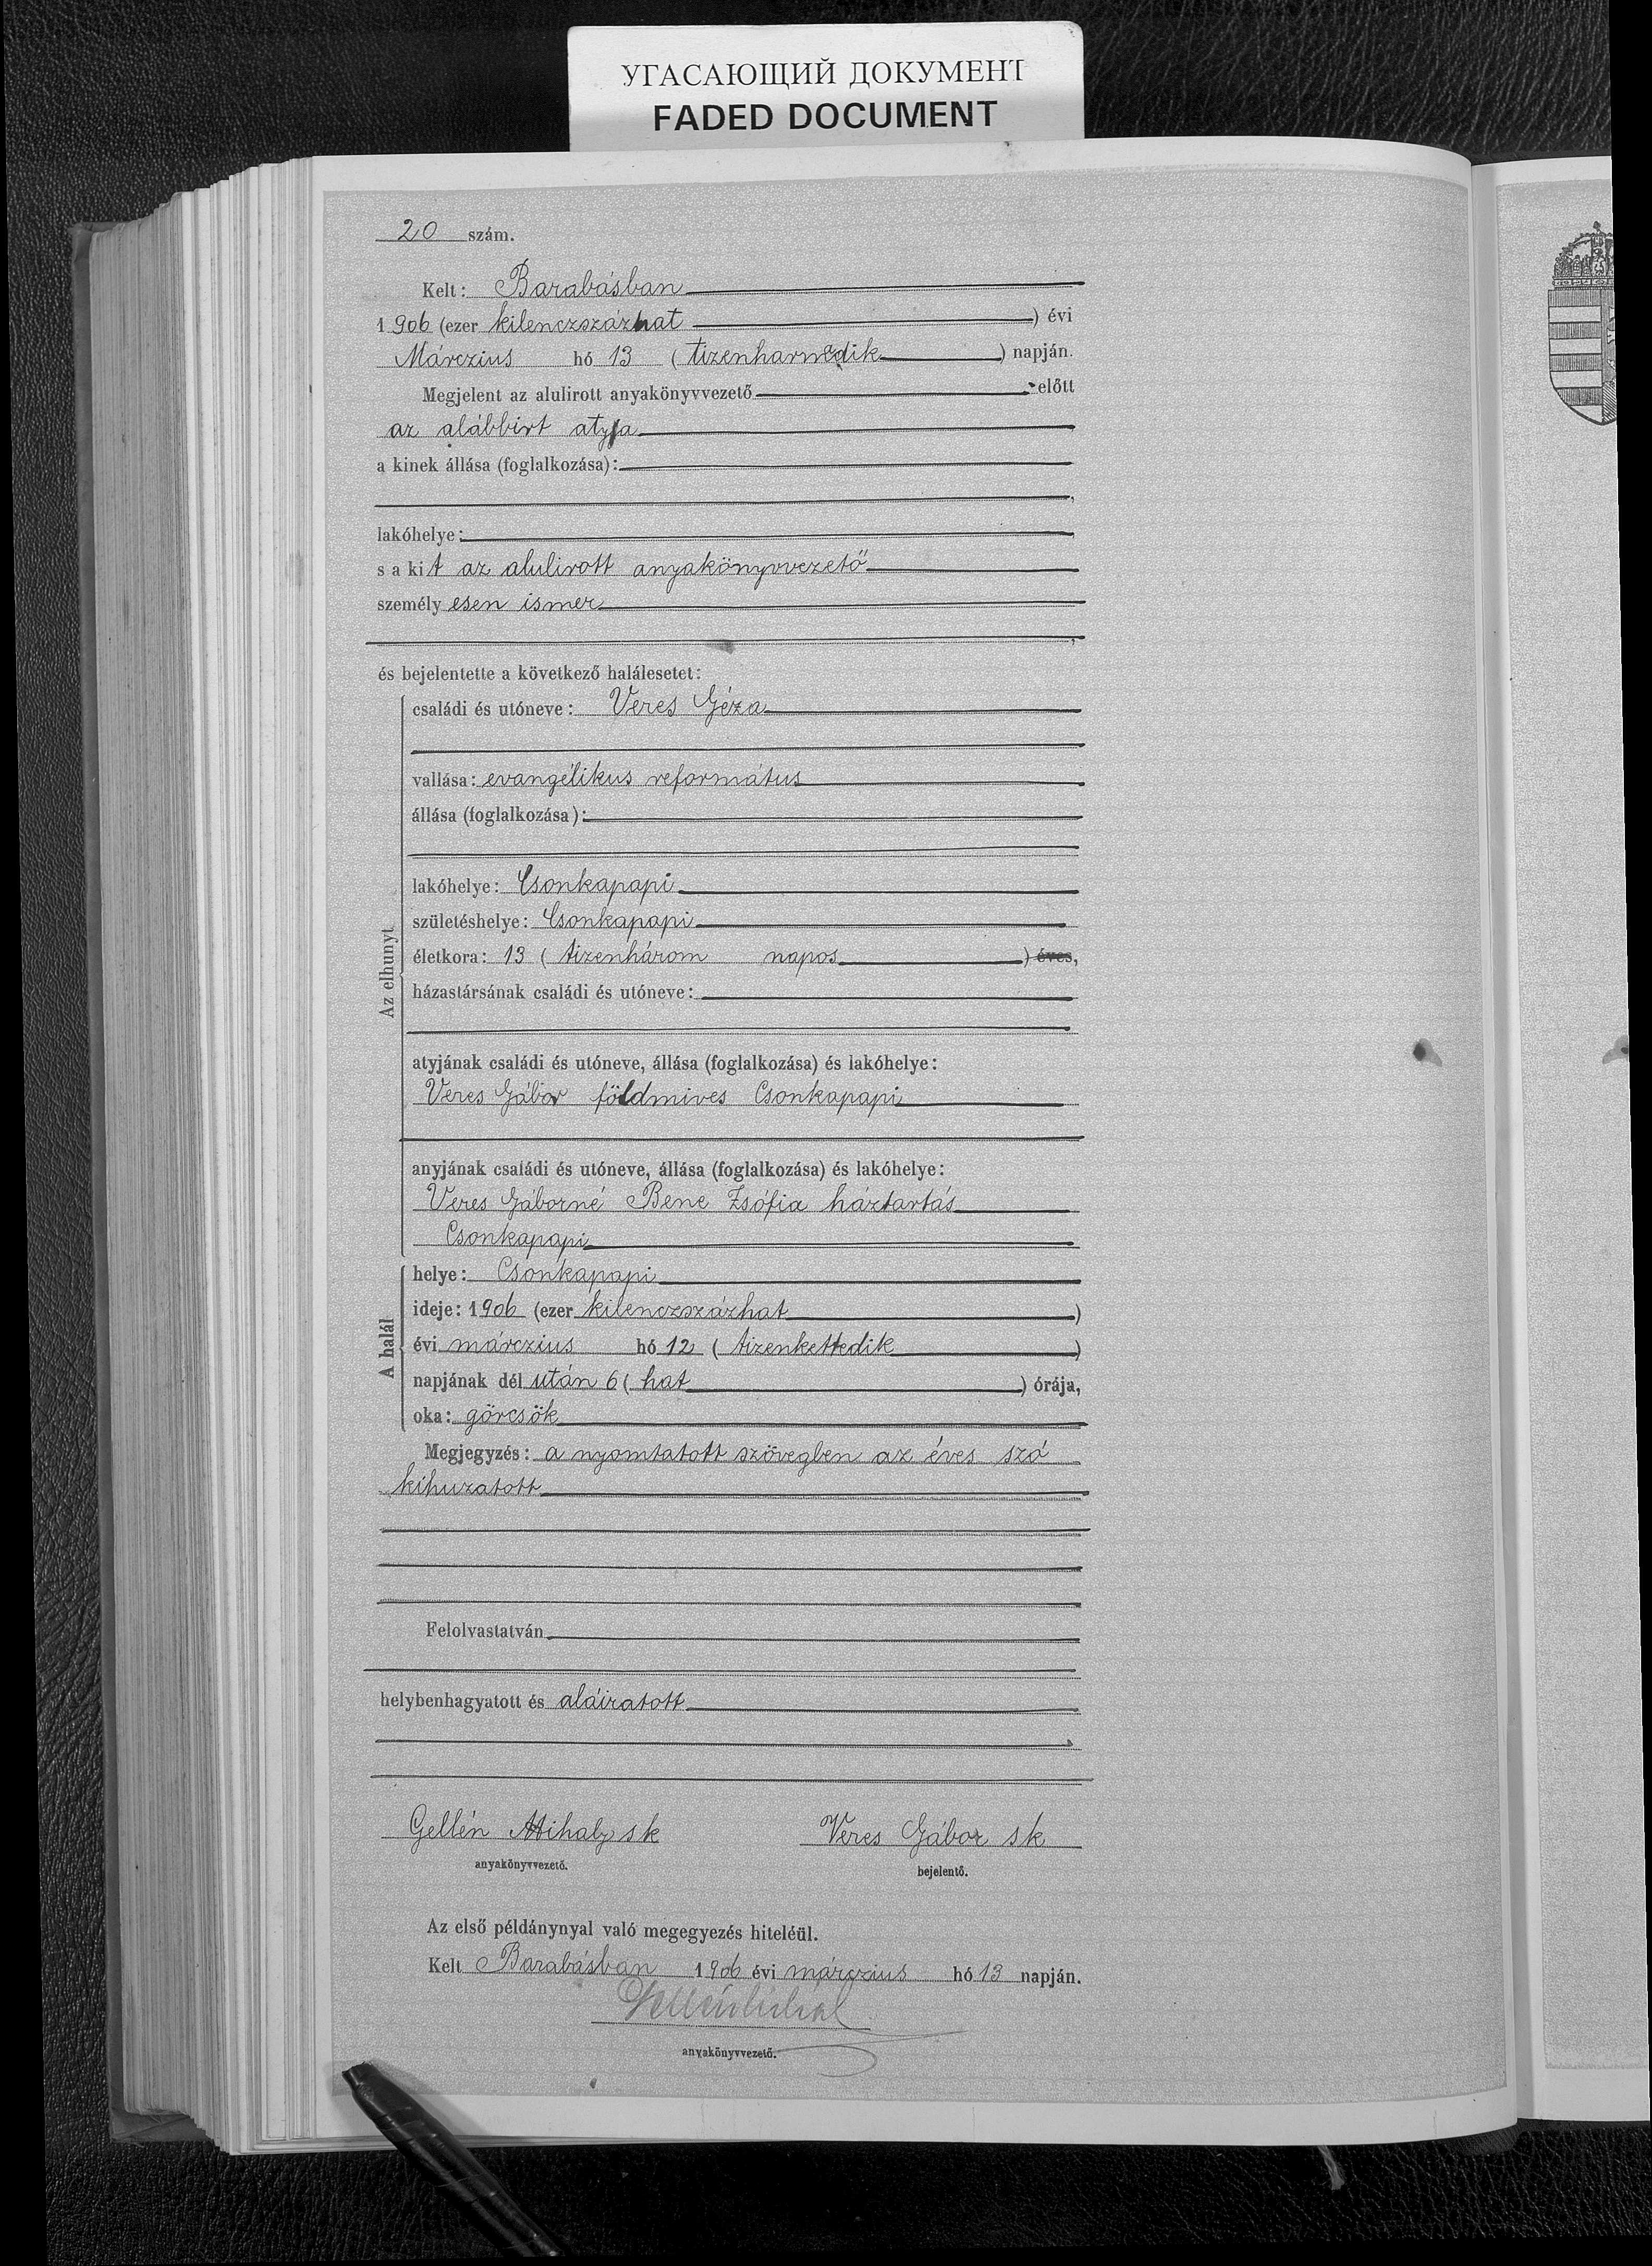 УГАСАЮЩИЙ ДОКУМЕНТ
FADED DOCUMENT
20 szám.
Kelt: Barabásban
1906 (ezer kilenczszázhat) évi
Márczius hó 13 (tizenharmadik) napján.
Megjelent az alulirott anyakönyvvezető előtt
az alábbirt atyja
a kinek állása (foglalkozása):
lakóhelye:
s a kit az alulirott anyakönyvvezető
személyesen ismer
és bejelentette a következő halálesetet:
Az elhunyt
családi és utóneve: Veres Géza
vallása: evangélikus református
állása (foglalkozása):
lakóhelye: Csonkapapi
születéshelye: Csonkapapi
életkora: 13 (tizenhárom napos) éves,
házastársának családi és utóneve:
atyjának családi és utóneve, állása (foglalkozása) és lakóhelye:
Veres Gábor földmives Csonkapapi
anyjának családi és utóneve, állása (foglalkozása) és lakóhelye:
Veres Gáborné Bene Zsófia háztartás
Csonkapapi
A halál
helye: Csonkapapi
ideje: 1906 (ezer kilenczszázhat)
évi márczius hó 12 (tizenkettedik)
napjának dél után 6 (hat) órája,
oka: görcsök
Megjegyzés: a nyomtatott szövegben az éves szó
kihuzatott
Felolvastatván
helybenhagyatott és aláiratott
Gellén Mihaly sk Veres Gábor sk
anyakönyvvezető. bejelentő.
Az első példánynyal való megegyezés hiteléül.
Kelt Barabásban 1906 évi márczius hó 13 napján.
anyakönyvvezető.